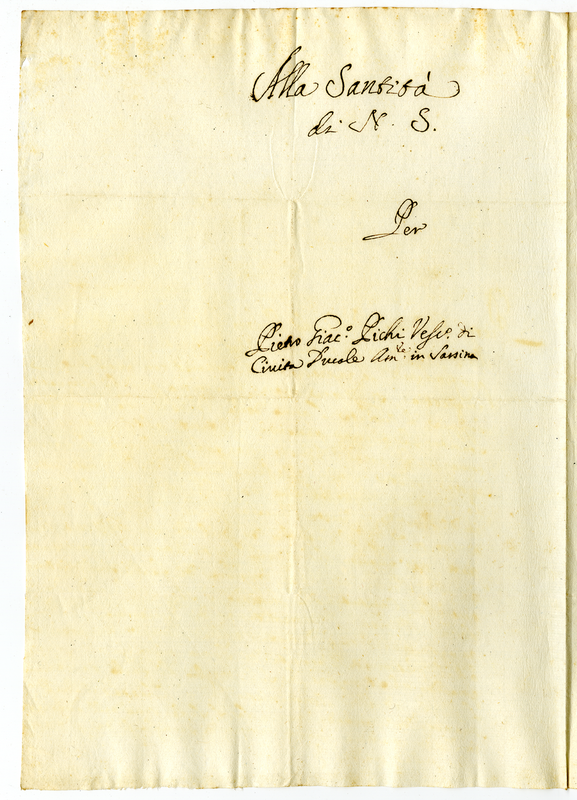 Alla Santità
di N. S.
Per
Pietro Giac.º Pichi Vesc.º di
Civita Ducale Am.te in Sarsina